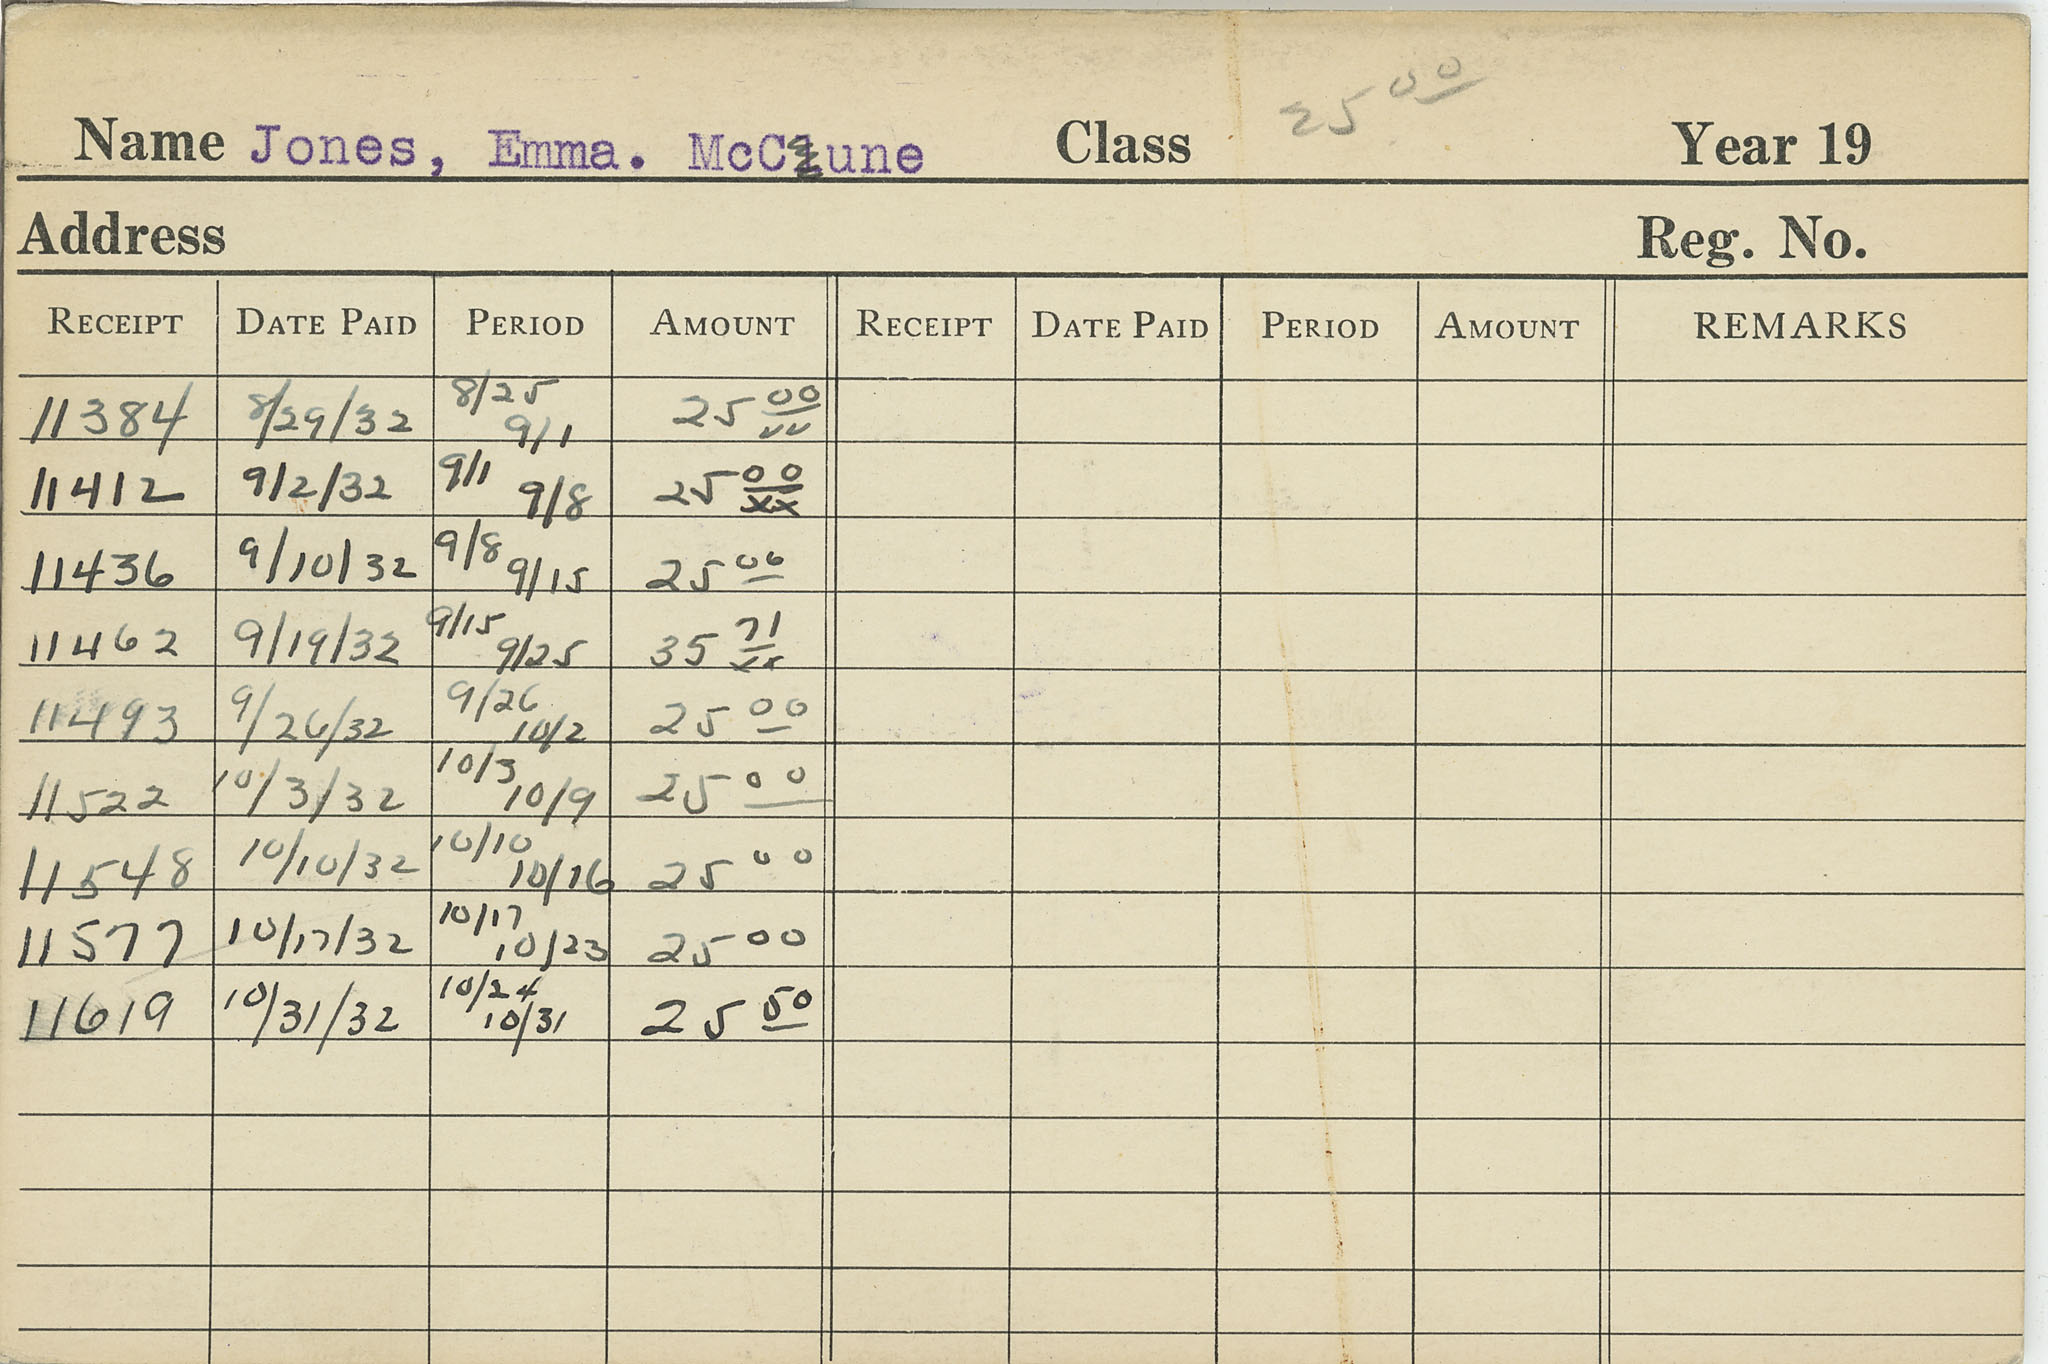 25 00
Name Jones, Emma. McClune Class Year 19
Address Reg. No.
RECEIPT DATE PAID PERIOD AMOUNT RECEIPT DATE PAID PERIOD AMOUNT REMARKS
11384 8/29/32 8/25 9/1 25 00
11412 9/2/32 9/1 9/8 25 00 xx
11436 9/10/32 9/8 9/15 25 00
11462 9/19/32 9/15 9/25 35 71 xx
11493 9/26/32 9/26 10/2 25 00
11522 10/3/32 10/3 10/9 25 00
11548 10/10/32 10/10 10/16 25 00
11577 10/17/32 10/17 10/23 25 00
11619 10/31/32 10/24 10/31 25 50